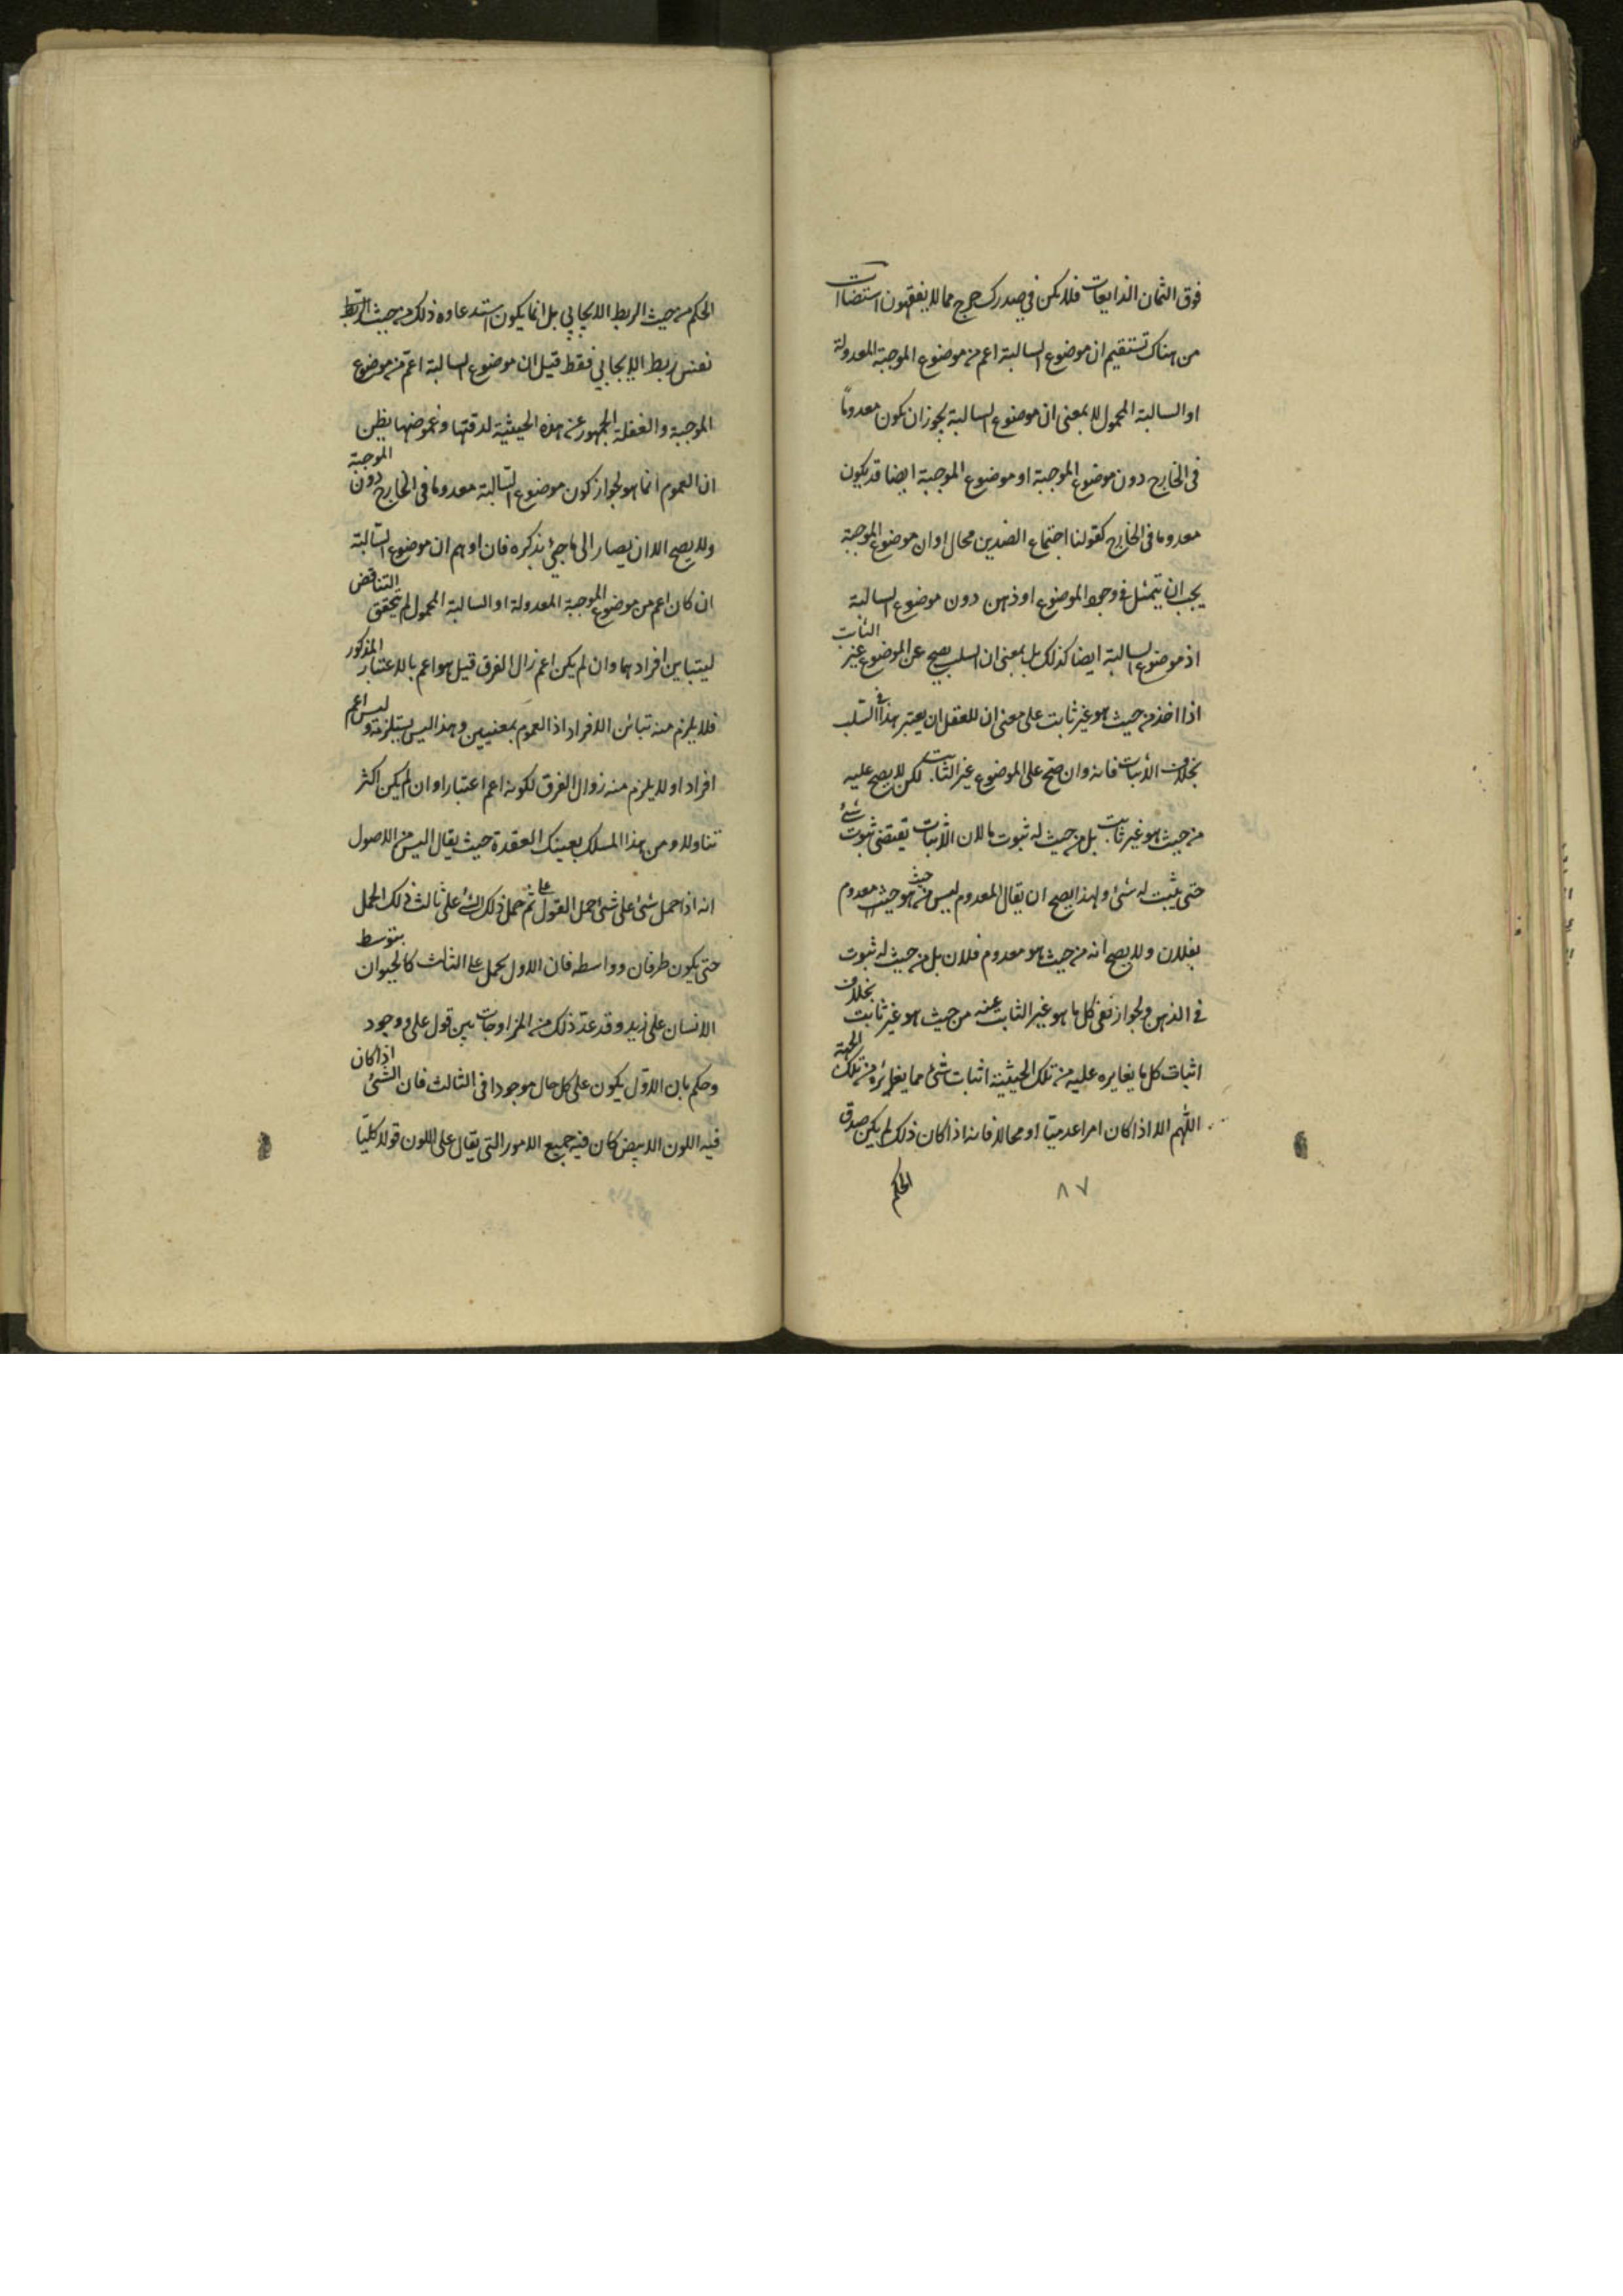 فوق الثمان الذايعات فلا يكن في صدرك حرج مما لا يفقهون استضاات
من هناك تستقيم ان موضوع السالبة اعم من موضوع الموجبة المعدولة
او السالبة المحمول لا بمعنى ان موضوع السالبة يجوز ان يكون معدوماً
فى الخارج دون موضوع الموجبة او موضوع الموجبة ايضا قد يكون
معدوما فى الخارج كقولنا اجتماع الضدين محال او ان موضوع الموجبة
يجب ان يتمثل فى وجود الموضوع او ذهن دون موضوع السالبة
اذ موضوع السالبة ايضا كذلك بل بمعنى ان السلب يصح عن الموضوع غير الثابت
اذا اخذ من حيث هو غير ثابت على معنى ان للعقل ان يعتبر هذا فى السلب
بخلاف الاثبات فانه وان صح على الموضوع غير الثابت لكن لا يصح عليه
من حيث هو غير ثابت بل من حيث له ثبوت ما لان الاثبات يقتضى ثبوت شئ
حتى يثبت له شئ ولهذا يصح ان يقال المعدوم ليس من حيث هو معدوم
بفلان ولا يصح انه من حيث هو معدوم فلان بل من حيث له ثبوت
فى الذهن ولجواز نفى كل ما هو غير الثابت عنه من حيث هو غير ثابت بخلاف
اثبات كل ما يغايره عليه من تلك الحيثية اثبات شئ مما يغايره من تلك الجهة
اللهم الا اذا كان امرا عدميا او محالا فانه اذا كان ذلك لم يكن صدق
الحكم
٨٧
الحكم من حيث الربط الايجابي بل انما يكون استدعاوه ذلك من حيث الربط
نفس ربط الايجابي فقط قيل ان موضوع السالبة اعم من موضوع
الموجبة والغفلة الجمهور عن هذه الحيثية لدقتها وغموضها يظن
ان العموم انما هو لجواز كون موضوع السالبة معدوما فى الخارج دون الموجبة
ولا يصح الا ان يصار الى ما جئ بذكره فان اوهم ان موضوع السالبة
ان كان اعم من موضوع الموجبة المعدولة او السالبة المحمول لم يتحقق التناقض
ليتباين افرادهما وان لم يكن اعم زال الفرق قيل هو اعم بالاعتبار المذكور
فلا يلزم منه تبائن الافراد اذ العموم بمعنيين وهذا ليس يستلزمه وليس اعم
افرادا ولا يلزم منه زوال الفرق لكونه اعم اعتبارا وان لم يكن اكثر
تناولا ومن هذا المسلك يعينك العقدة حيث يقال اليس من الاصول
انه اذا حمل شئ على شئ حمل القول على ثم حمل ذلك الشئ على ثالث ذلك الحمل
حتى يكون طرفان وواسطه فان الاول يحمل على الثالث كالحيوان بتوسط
الانسان على زيد وقد عد ذلك من المزاوجات بين قول على ووجود
وحكم بان الاول يكون على كل حال موجودا فى الثالث فان الشئ اذا كان
فيه اللون الابيض كان فيه جميع الامور التى يقال على اللون قولا كليا